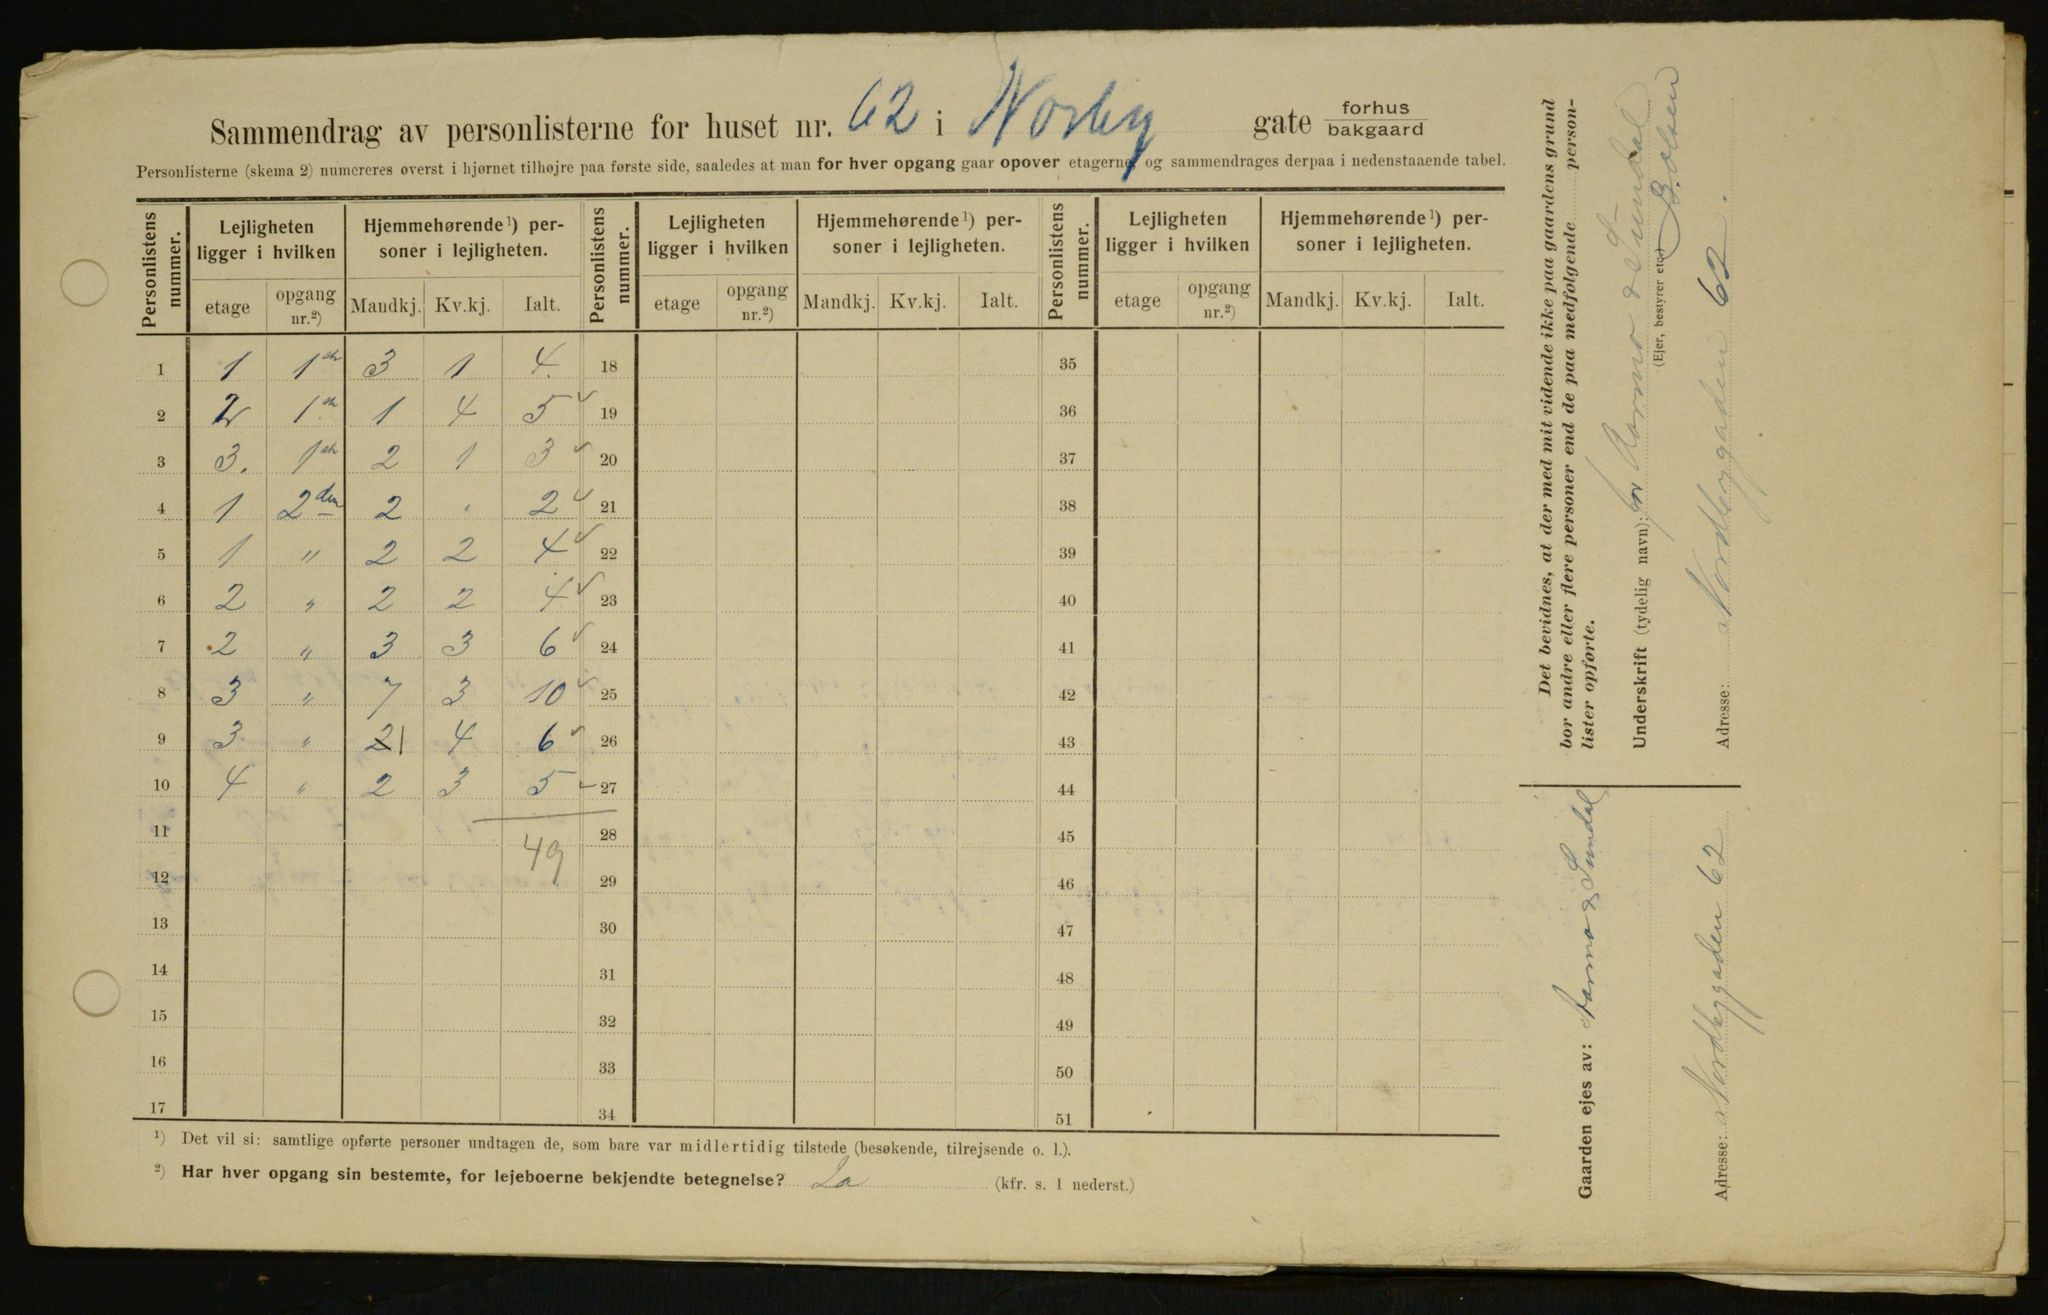 Sammendrag av personlisterne for huset nr. 62 i Norby gate forhus bakgaard
Personlisterne (skema 2) numereres øverst i hjørnet tilhøjre paa første side, saaledes at man for hver opgang gaar opover etagerne, og sammendrages derpaa i nedenstaaende tabel.
Personlistens nummer. Lejligheten ligger i hvilken Hjemmehørende ¹) personer i lejligheten. Personlistens nummer. Lejligheten ligger i hvilken Hjemmehørende ¹) personer i lejligheten. Personlistens nummer. Lejligheten ligger i hvilken Hjemmehørende ¹) personer i lejligheten.
etage opgang nr.²) Mandkj. Kv.kj. Ialt. etage opgang nr.²) Mandkj. Kv.kj. Ialt. etage opgang nr.²) Mandkj. Kv.kj. Ialt.
1 1 1ste 3 1 4 18 35
2 2 1ste 1 4 5 19 36
3 3. 1ste 2 1 3 20 37
4 1 2den 2 " 2 21 38
5 1 " 2 2 4 22 39
6 2 " 2 2 4 23 40
7 2 " 3 3 6 24 41
8 3 " 7 3 10 25 42
9 3 " 21 4 6 26 43
10 4 " 2 3 5 27 44
11 49 28 45
12 29 46
13 30 47
14 31 48
15 32 49
16 33 50
17 34 51
¹) Det vil si: samtlige opførte personer undtagen de, som bare var midlertidig tilstede (besøkende, tilrejsende o. l.).
²) Har hver opgang sin bestemte, for lejeboerne bekjendte betegnelse? Ja (kfr. s. 1 nederst.)
Det bevidnes, at der med mit vidende ikke paa gaardens grund
bor andre eller flere personer end de paa medfølgende person-
lister opførte.
Underskrift (tydelig navn): for Aarmo & Sundal
(Ejer, bestyrer etc.) B. Olsen
Adresse: Nordbygaden 62.
Gaarden ejes av: Aarmo & Sundal
Adresse: Nordbygaden 62